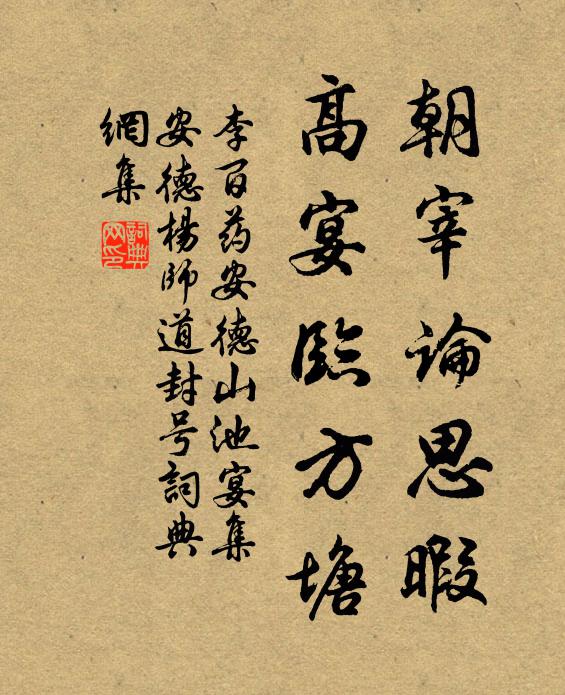 朝宰論思暇
高宴臨方塘
李百药安德山池宴集
安德楊師道封号詞典
網集
詞典網印